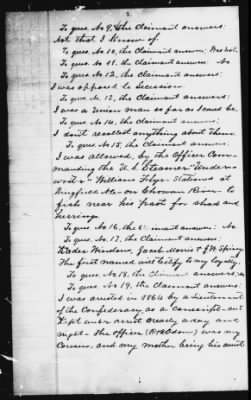 2
To ques. No 9, the claimant answers:
Not that I know of.
To ques. No 10, the claimant answers; Was not.
To ques. No 11. the claimant answers. No
To ques. No 12, the claimant answers:
I was opposed to Secession
To ques. No 13, the claimant answers;
I was a Union man as far as I could be.
To ques. No 14, the claimant answers;
I don't recollect anything about them.
To ques. No 15, the claimant answer:
I was allowed, by the Officer Com-
manding the U.S. Steamer "Under-
writer" William Flye. Stationed at
Wingfield on Chowan River to
fish near his fort for shad and
herrings
To ques. No 16, the claimant answer: No
To ques. No. 17, the claimant answer:
The first named will testify to my loyalty.
To ques. No. 18, the claimant answers, no
To ques. No 19. the claimant answers:
I was arrested in 1864 by a Lieutenant
of the Confederacy, as a conscript and
Kept under arrest nearly a day and
night. The officer was my
Cousin, and my mother being his aunt